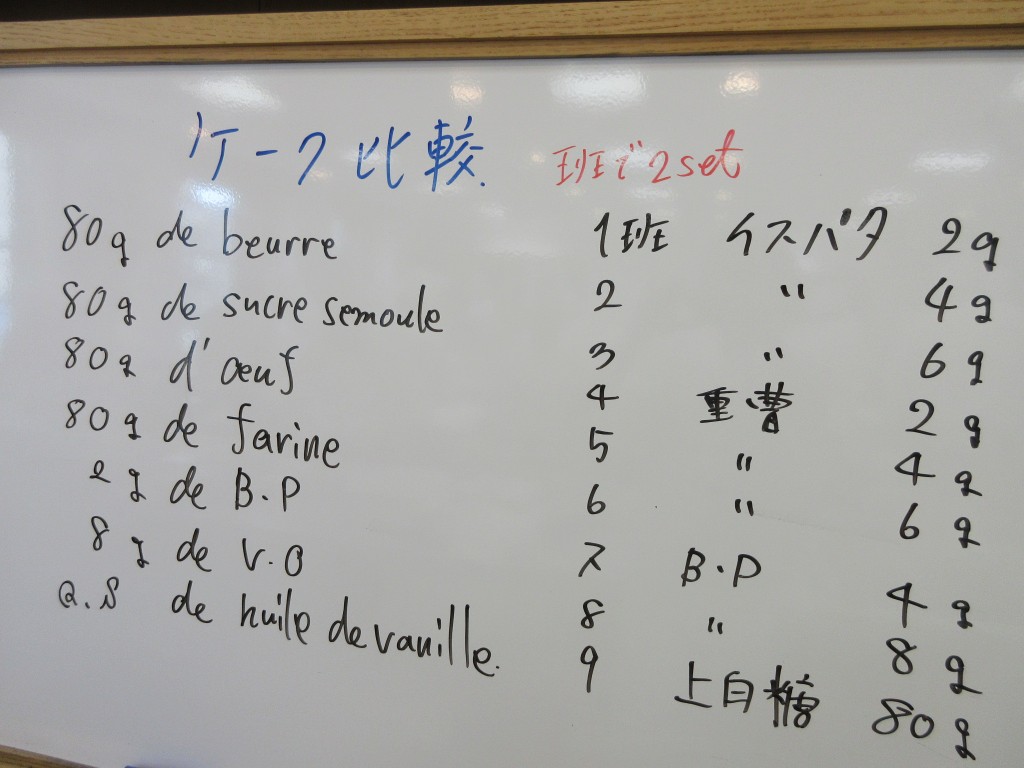 ケーク比較 班で2set
80g de beurre
80g de sucre semoule
80g d'œuf
80g de farine
2g de B.P
8g de V.O
Q.S de huile de vanille.
1班 イスパタ 2g
2 〃 4g
3 〃 6g
4 重曹 2g
5 〃 4g
6 〃 6g
7 B.P 4g
8 〃 8g
9 上白糖 80g